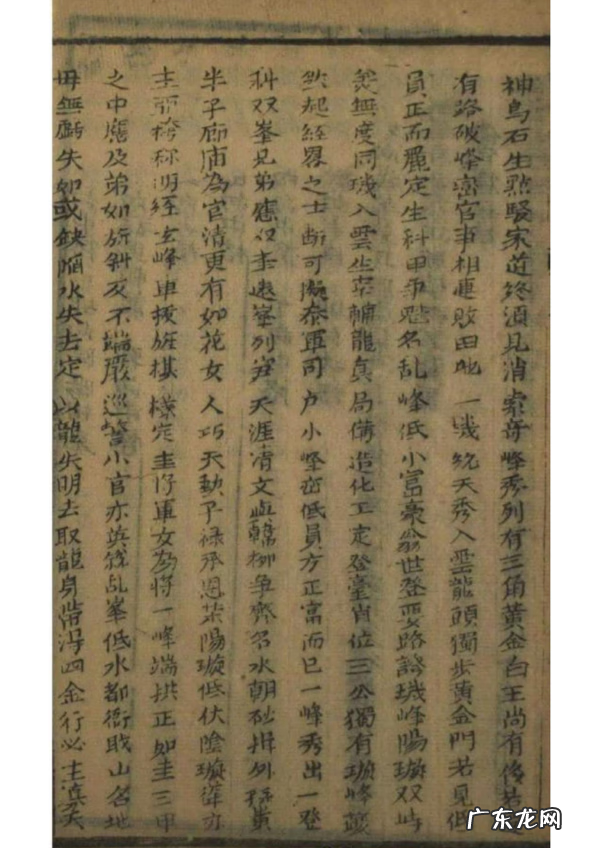 神鸟石生點騐家道終須見消索奇峰秀列有三角黃金白玉尚有
有路破峰當官事相連敗田地一幾統天秀入雲龍頭獨步黃金門若見低
員正而麗定生科甲爭魁名乱峰低小富豪翁世登要路誇璣峰陽璇双峙
無度同璣入雲生宰輔龍真局備造化工定登臺省位三公獨有璇峰
然起經畧之士断可擬奈軍司户小峰峦低員方正富而已一峰秀出一登
科双峯兄弟應双圭遠峯列笋天涯清文争齊名水朝砂揖列
半子廊庙為官清更有如花女人巧天動予禄承恩荣陽璇低伏陰璇聳亦
主亞榜称明經玄峰卓拔旌棋様定主将軍女為将一峰端拱正如圭三甲
之中應及弟如斾斜反不端嚴巡警小官亦兵乱峯低水都衙敗山名地
毋無虧失如或缺陷水失去定以龍失明去取龍身諧得四金行必主真
广东龙网